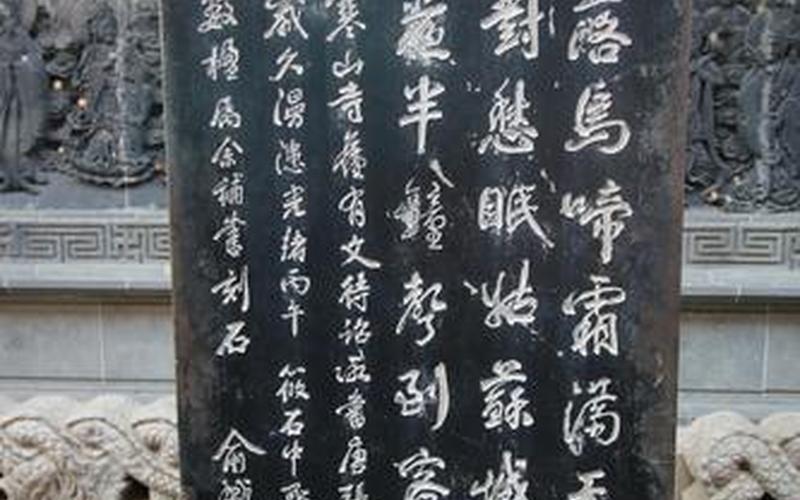 落烏啼霜滿天
對愁眠姑蘇城
夜半鐘聲到客
寒山寺舊有文待詔所書唐張
歲久漫漶光緒丙午 筱石中丞
數楹屬余補書刻石 俞樾